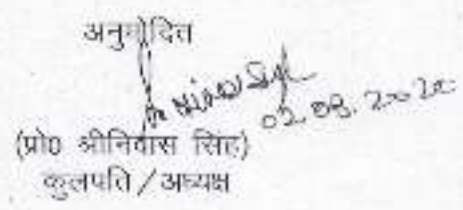 अनुमोदित
02.09.2020
(प्रो0 श्रीनिवास सिंह)
कुलपति/अध्यक्ष